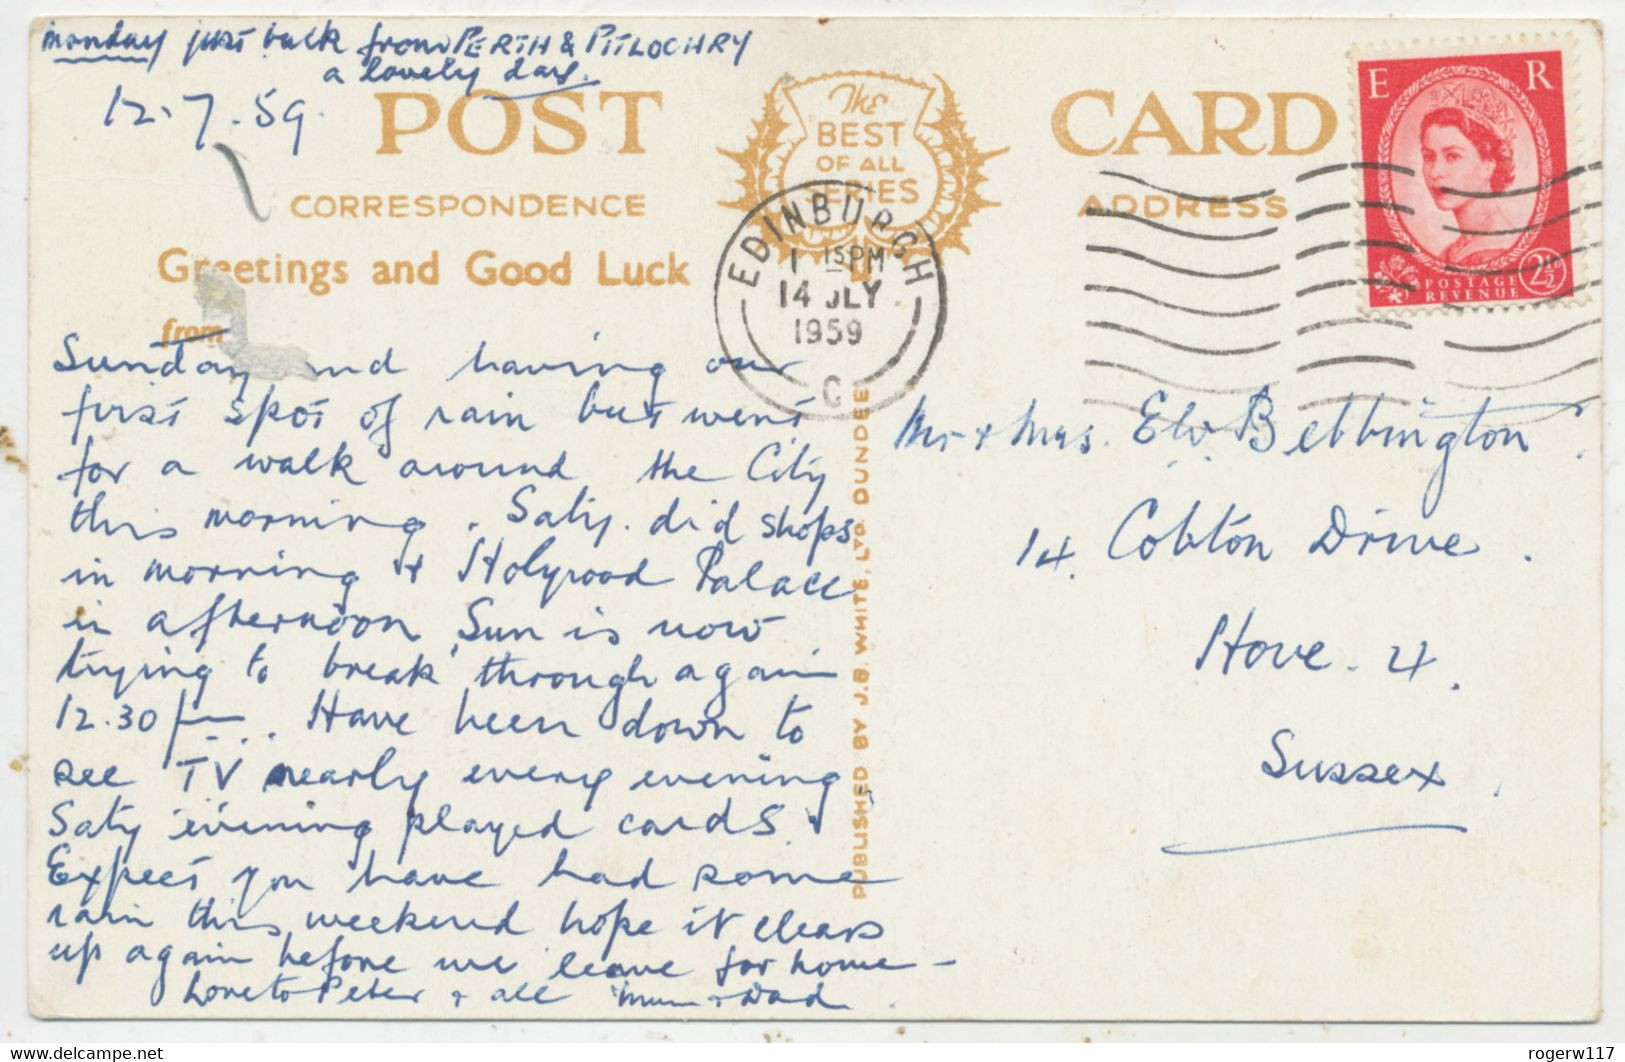 monday just back from PERTH & PITLOCHRY
a lovely day.
12.7.59.
POST CARD
The
BEST
OF ALL
SERIES
CORRESPONDENCE
ADDRESS
Greetings and Good Luck
from
E R
POSTAGE
REVENUE
2½D
EDINBURGH
1 15 PM
14 JLY
1959
C
Sunday and having our
first spot of rain but went
for a walk around the City
this morning. Saty. did shops
in morning & Holyrood Palace
in afternoon Sun is now
trying to break through again
12.30 pm. Have been down to
see TV nearly every evening
Saty evening played cards.
Expect you have had some
rain this weekend hope it clears
up again before we leave for home -
Love to Peter & all Mum & Dad.
PUBLISHED BY J.B. WHITE, LTD. DUNDEE
Mr & Mrs. E.W. Bebbington
14. Cobton Drive.
Hove. 4.
Sussex.
www.delcampe.net
rogerw117